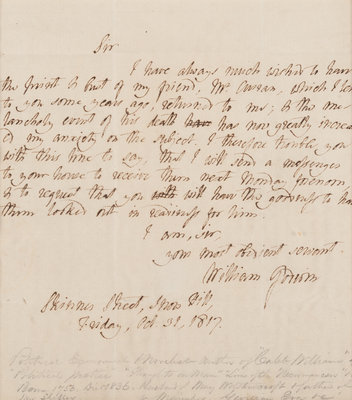 Sir
I have always much wished to have
the print & bust of my friend, Mr. Curran, which I lent
to you some years ago, returned to me; & the me
lancholy event of his death has now greatly increas
ed my anxiety on the subject. I therefore trouble you
with this line to say, that I will send a messenger
to your house to receive them next Monday forenoon,
& to request that you will have the goodness to have
them looked out in readiness for him.
I am, Sir,
your most obedient servant
William Godwin
Skinner Street, Snow Hill,
Friday, Oct. 31, 1817.
Political Novelist Author of "Caleb Williams"
Political Justice
Born 1756 Died 1836. Husband of Mary Wollstonecraft & father of